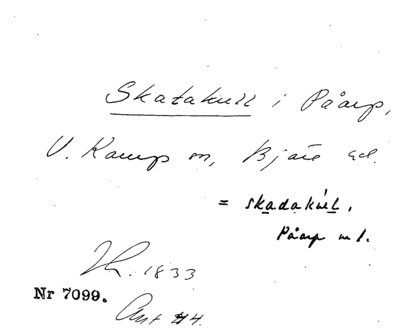 Skatakull i Påarp,
V. Karup sn, Bjäre hd.
= skadakúl.
Påarp m l.
1833
Nr 7099.
Ant 44.